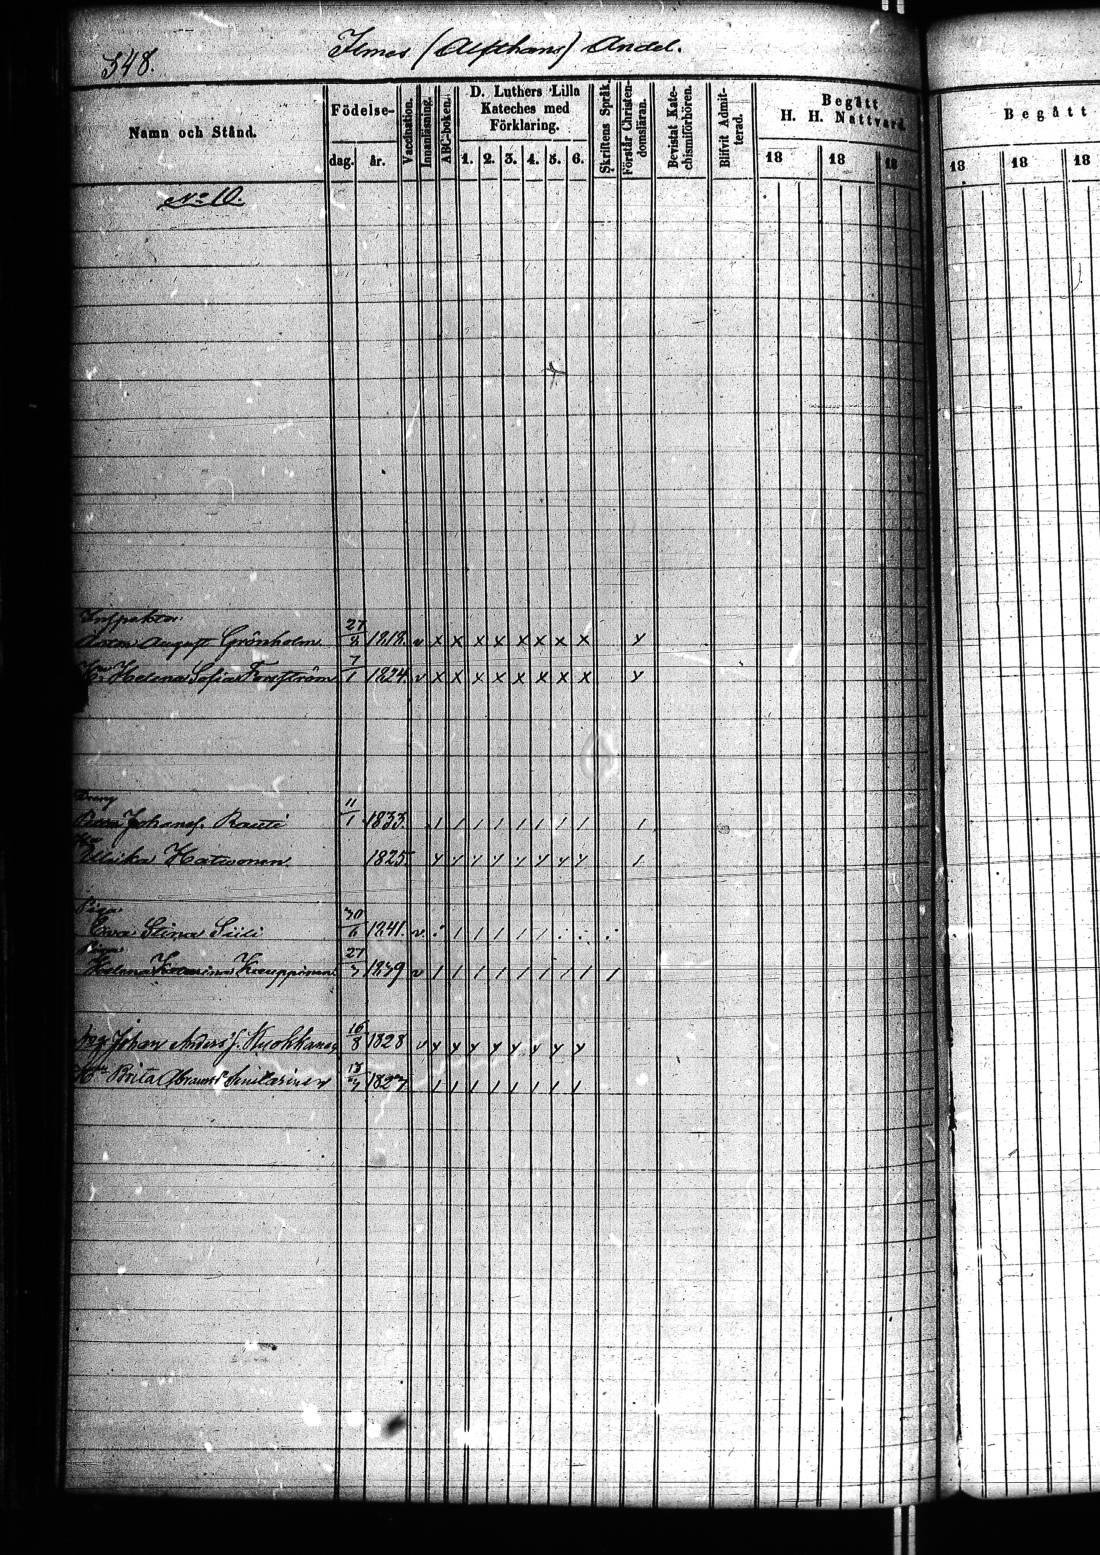 348.
Ilmes (Alfthans) Andel.
Namn och Stånd.
Födelse-
dag. år.
Vaccination.
Innanläsning.
ABC-boken.
D. Luthers Lilla
Kateches med
Förklaring.
1. 2. 3. 4. 5. 6.
Skriftens Språk.
Förstår Christen-
domsläran.
Bevistat Kate-
chismiförhören.
Blifvit Admit-
terad.
Begått
H. H. Nattvard.
18 18 18
Begått
18 18 18
No 10.
Inspektor
August Grönholm 27 1818. v x x x x x x x x x
Helena Sofia Forsström 7/1 1824 v x x x x x x x x x
Dräng
Johanss. Rauti 11/1 1833. / / / / / / / / /
Ulrika Hatwonen 1825 y y y y y y y y /
Piga
Ewa Stina Siili 30/6 1841. v
Piga
Helena Kauppinen 27/7 1839 v / / / / / / / / /
Johan Anders s. 16/8 1828 v y y y y y y y
Brita 1827 / / / / / / /